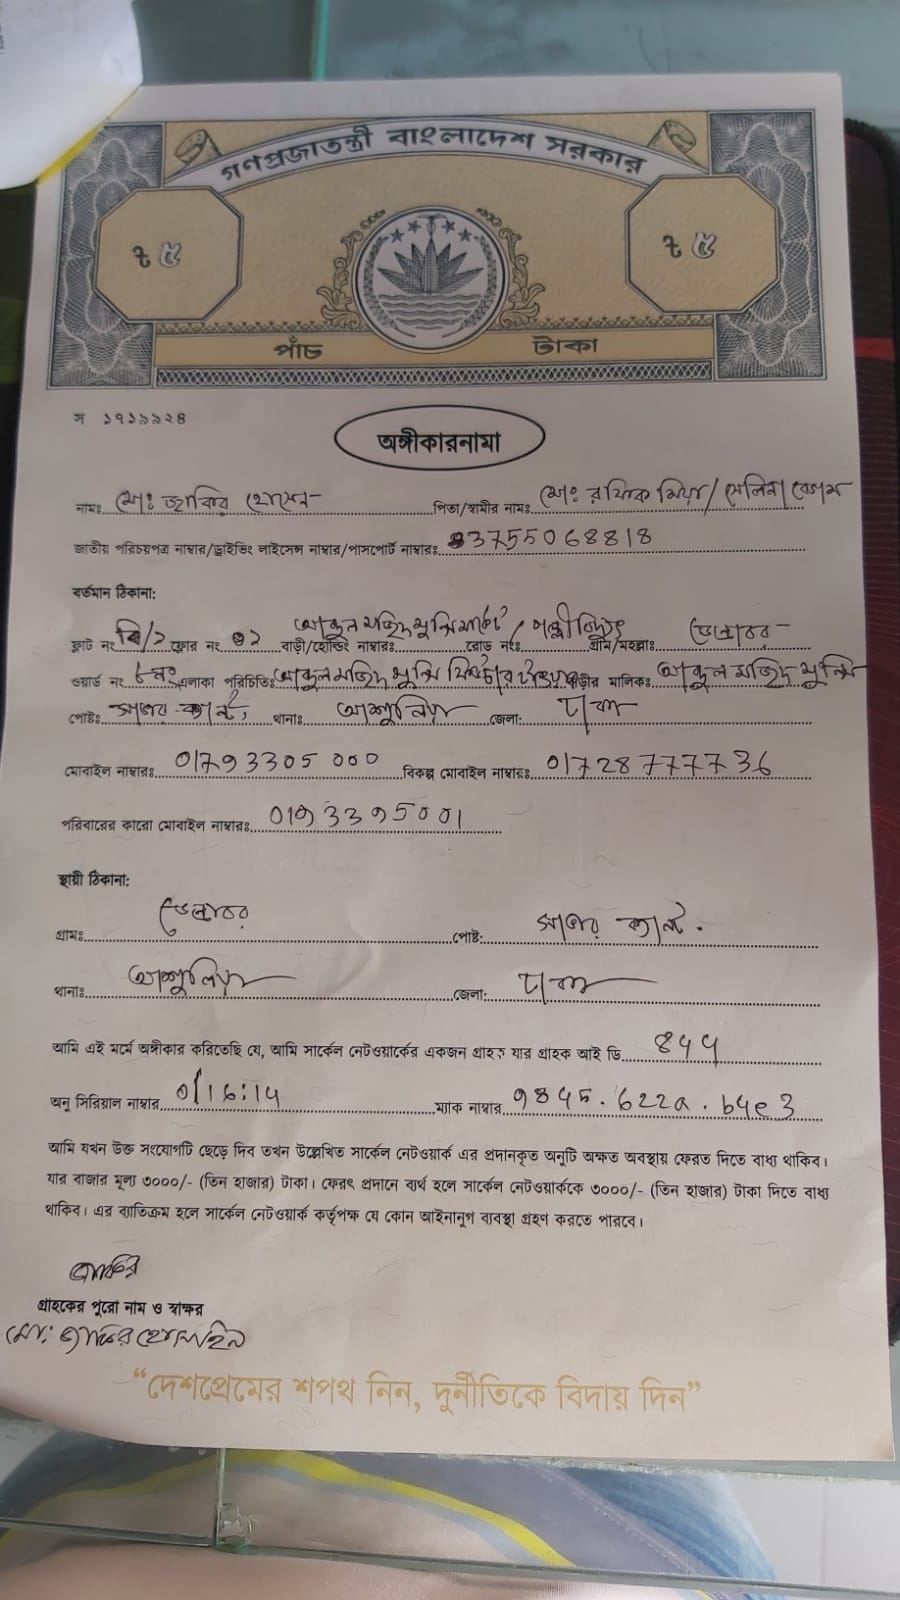 গণপ্রজাতন্ত্রী বাংলাদেশ সরকার
৳ ৫ ৳ ৫
পাঁচ টাকা
স ১৭১৯৯২৪
অঙ্গীকারনামা
নামঃ মোঃ জাকির হোসেন পিতা/স্বামীর নামঃ মোঃ রফিক মিয়া/ সেলিনা বেগম
জাতীয় পরিচয়পত্র নাম্বার/ড্রাইভিং লাইসেন্স নাম্বার/পাসপোর্ট নাম্বারঃ 3755068818
বর্তমান ঠিকানা:
ফ্লাট নং বি/২ ফ্লোর নং ০১ বাড়ী/হোল্ডিং নাম্বারঃ মুন্সি মার্কেট রোড নংঃ পল্লীবিদ্যুৎ গ্রাম/মহল্লাঃ
ওয়ার্ড নং ৮নং এলাকা পরিচিতিঃ মুন্সি বাড়ীর মালিকঃ মুন্সি
পোষ্টঃ সাভার ক্যান্ট, থানাঃ আশুলিয়া জেলা: ঢাকা
মোবাইল নাম্বারঃ 01793305000 বিকল্প মোবাইল নাম্বারঃ 01728777736
পরিবারের কারো মোবাইল নাম্বারঃ
স্থায়ী ঠিকানা:
গ্রামঃ পোষ্ট: সাভার ক্যান্ট.
থানাঃ আশুলিয়া জেলা: ঢাকা
আমি এই মর্মে অঙ্গীকার করিতেছি যে, আমি সার্কেল নেটওয়ার্কের একজন গ্রাহক যার গ্রাহক আই ডি
অনু সিরিয়াল নাম্বার 0/16:14 ম্যাক নাম্বার
আমি যখন উক্ত সংযোগটি ছেড়ে দিব তখন উল্লেখিত সার্কেল নেটওয়ার্ক এর প্রদানকৃত অনুটি অক্ষত অবস্থায় ফেরত দিতে বাধ্য থাকিব।
যার বাজার মূল্য ৩০০০/- (তিন হাজার) টাকা। ফেরৎ প্রদানে ব্যর্থ হলে সার্কেল নেটওয়ার্ককে ৩০০০/- (তিন হাজার) টাকা দিতে বাধ্য
থাকিব। এর ব্যতিক্রম হলে সার্কেল নেটওয়ার্ক কর্তৃপক্ষ যে কোন আইনানুগ ব্যবস্থা গ্রহণ করতে পারবে।
জাকির
গ্রাহকের পুরো নাম ও স্বাক্ষর
মো: জাকির হোসাইন
“দেশপ্রেমের শপথ নিন, দুর্নীতিকে বিদায় দিন”